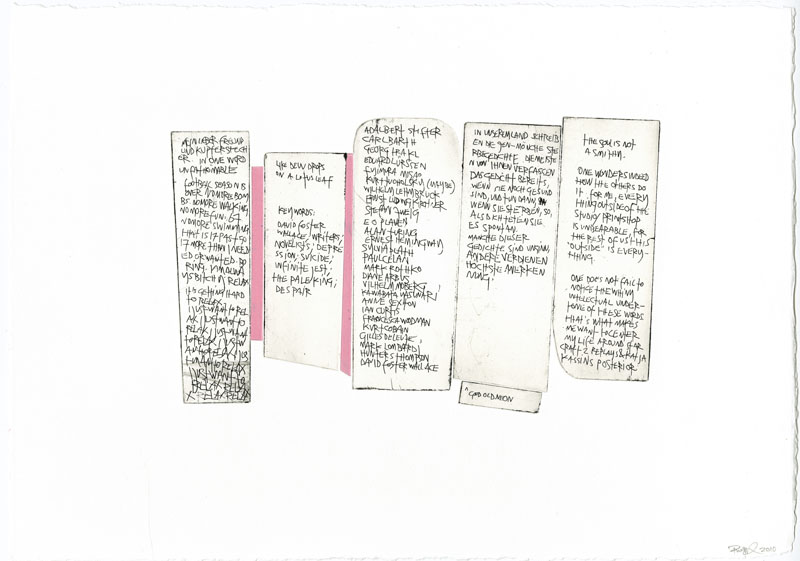 MEIN LIEBER FREUND
UND KUPFERSTECH
ER. IN ONE WORD
UNFATHOMABLE
FOOTBALL SEASON IS
OVER. NO MORE BOM
BS. NO MORE WALKING
NO MORE FUN. 67
NO MORE SWIMMING
THAT IS 17 PAST 50
17 MORE THAN I NEED
ED OR WANTED. BO
RING.
BITCHY RELAX
IT'S GETTING HARD
TO RELAX
I JUST WANT TO REL
AX I JUST WANT TO
RELAX I JUST WANT
TO RELAX I JUST W
ANT TO RELAX I JUS
T WANT TO RELAX
I JUST WANT TO
RELAX RELA
X RELAX RELAX
LIKE DEW DROPS
ON A LOTUS LEAF
KEYWORDS:
DAVID FOSTER
WALLACE; WRITERS;
NOVELISTS; DEPRE
SSION; SUICIDE;
INFINITE JEST;
THE PALE KING;
DESPAIR
ADALBERT STIFTER
CARL BARTH
GEORG TRAKL
EDUARD LURSSEN
FUJIMURA MISAO
KURT TUCHOLSKY (MAYBE)
WILHELM LEHMBRUCK
ERNST LUDWIG KIRCHNER
STEFAN ZWEIG
E O PLAUEN
ALAN TURING
ERNEST HEMINGWAY
SYLVIA PLATH
PAUL CELAN
MARK ROTHKO
DIANE ARBUS
VILHELM MOBERG
KAWABATA YASUNARI
ANNE SEXTON
IAN CURTIS
FRANCESCA WOODMAN
KURT COBAIN
GILLES DELEUZE
MARK LOMBARDI
HUNTER S THOMPSON
DAVID FOSTER WALLACE
IN UNSEREM LAND SCHREIB
EN DIE ZEN-MÖNCHE STE
RBEGEDICHTE. DIE MEISTE
N VON IHNEN VERFASSEN
DAS GEDICHT BEREITS,
WENN SIE NOCH GESUND
SIND, UND TUN DANN,
WENN SIE STERBEN, SO,
ALS DICHTETEN SIE
ES SPONTAN.
MANCHE DIESER
GEDICHTE SIND UNSINN,
ANDERE VERDIENEN
HÖCHSTE ANERKEN
NUNG.
^GOOD OLD MOON
THE SOUL IS NOT
A SMITHY.
ONE WONDERS INDEED
HOW THE OTHERS DO
IT. FOR ME, EVERY
THING OUTSIDE OF THE
STUDIO/PRINTSHOP
IS UNBEARABLE, FOR
THE REST OF US THIS
'OUTSIDE' IS EVERY-
THING.
ONE DOES NOT FAIL TO
NOTICE THE WHINY
INTELLECTUAL UNDER-
TONE OF THESE WORDS
THAT'S WHAT MAKES
ME WANT TO CENTER
MY LIFE AROUND STAR
CRAFT 2 REPLAYS & KATJA
KASSINS POSTERIOR
2010